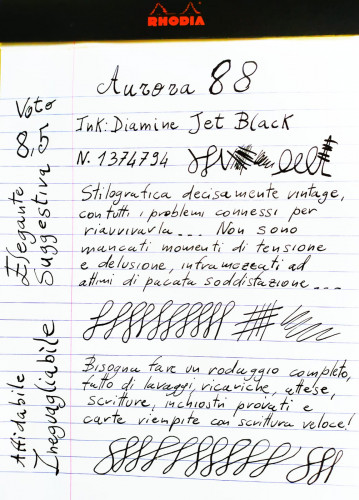 RHODIA
Aurora 88
Ink: Diamine Jet Black
N. 1374794
Stilografica decisamente vintage,
con tutti i problemi connessi per
riavvivarla... Non sono
mancati momenti di tensione
e delusione, inframezzati ad
attimi di pacata soddisfazione...
Bisogna fare un rodaggio completo,
fatto di lavaggi, ricariche, attese,
scritture, inchiostri provati e
carte riempite con scrittura veloce!
Voto
8,5
Elegante
Suggestiva
Affidabile
Ineguagliabile